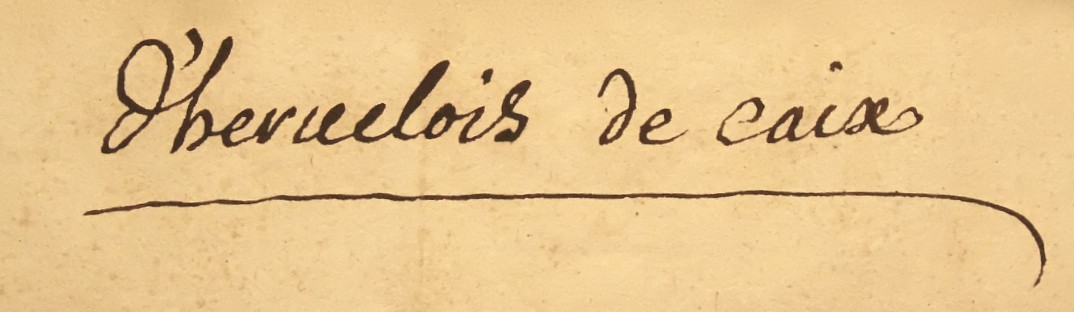 d'heruelois de caix